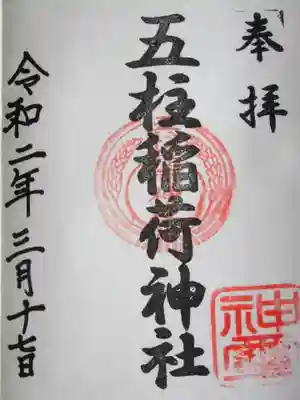 奉拝
五柱稲荷神社
令和二年三月十七日